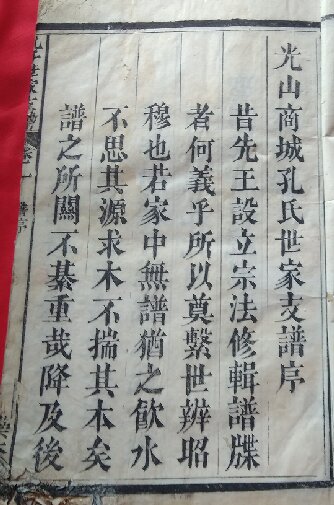 光山商城孔氏世家支譜序
昔先王設立宗法修輯譜牒
者何義乎所以奠繫世辨昭
穆也若家中無譜猶之飲水
不思其源求木不揣其本矣
譜之所關不綦重哉降及後